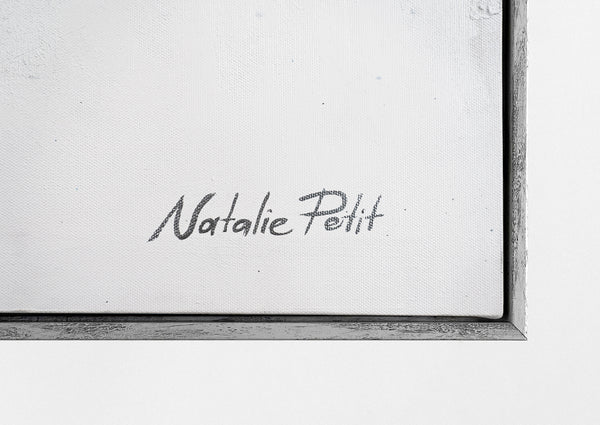 Natalie Petit